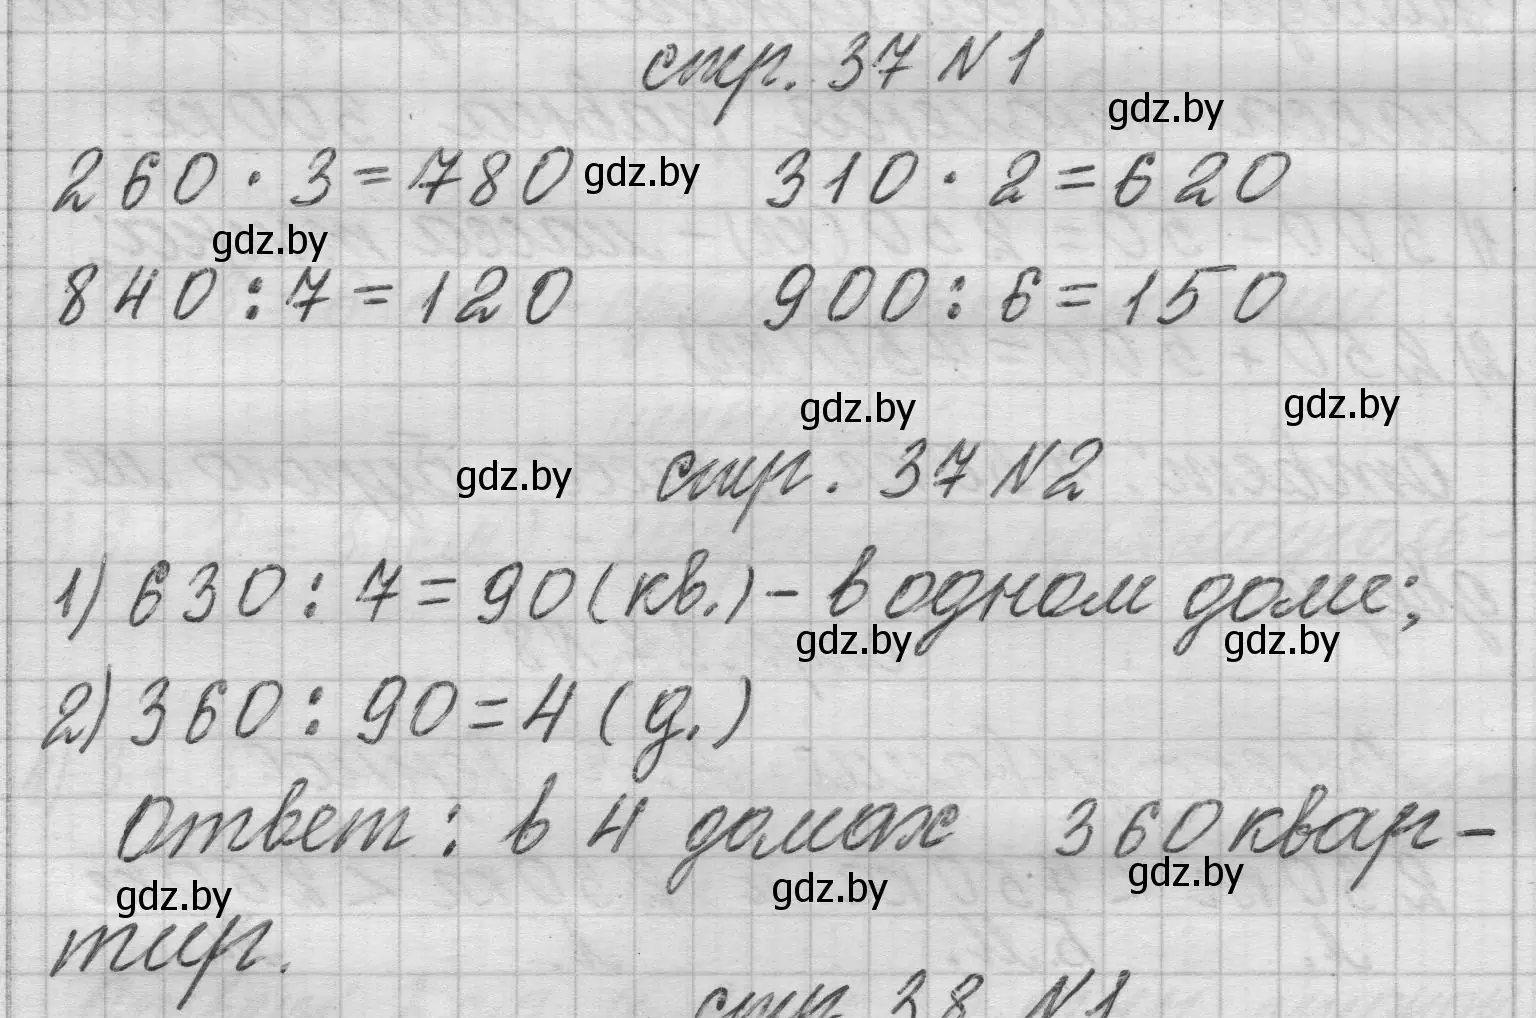 стр. 37 N 1
gdz.by
260 · 3 = 780 gdz.by 310 · 2 = 620
gdz.by
840 : 7 = 120 900 : 6 = 150
gdz.by gdz.by
gdz.by стр. 37 N 2
1) 630 : 7 = 90 (кв.) - в одном доме;
gdz.by gdz.by
2) 360 : 90 = 4 (д.)
Ответ: в 4 домах 360 квар-
gdz.by gdz.by gdz.by
тир.
стр. 38 N 1